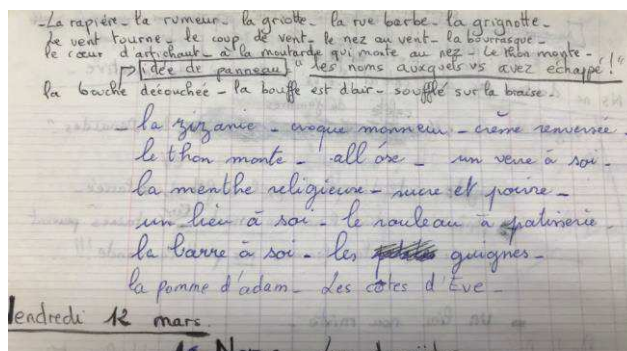 - La rapière - la rumeur - la griotte - la rue barbe - la grignotte -
Le vent tourne - le coup de vent - le nez au vent - la bourrasque -
le cœur d'artichaut - à la moutarde qui monte au nez - Le thon monte -
idée de panneau "les noms auxquels vs avez échappé!"
La bouche décousue - la bouffe est d'air - soufflé sur la braise -
- la zizanie - croque monsieur - crème renversée -
le thon monte - all ose - un verre à soi -
la menthe religieuse - sucre et poivre -
un lieu à soi - le rouleau à patisserie -
la barre à soi - les guignes -
la pomme d'adam - Les côtes d'Eve -
Vendredi 12 mars.